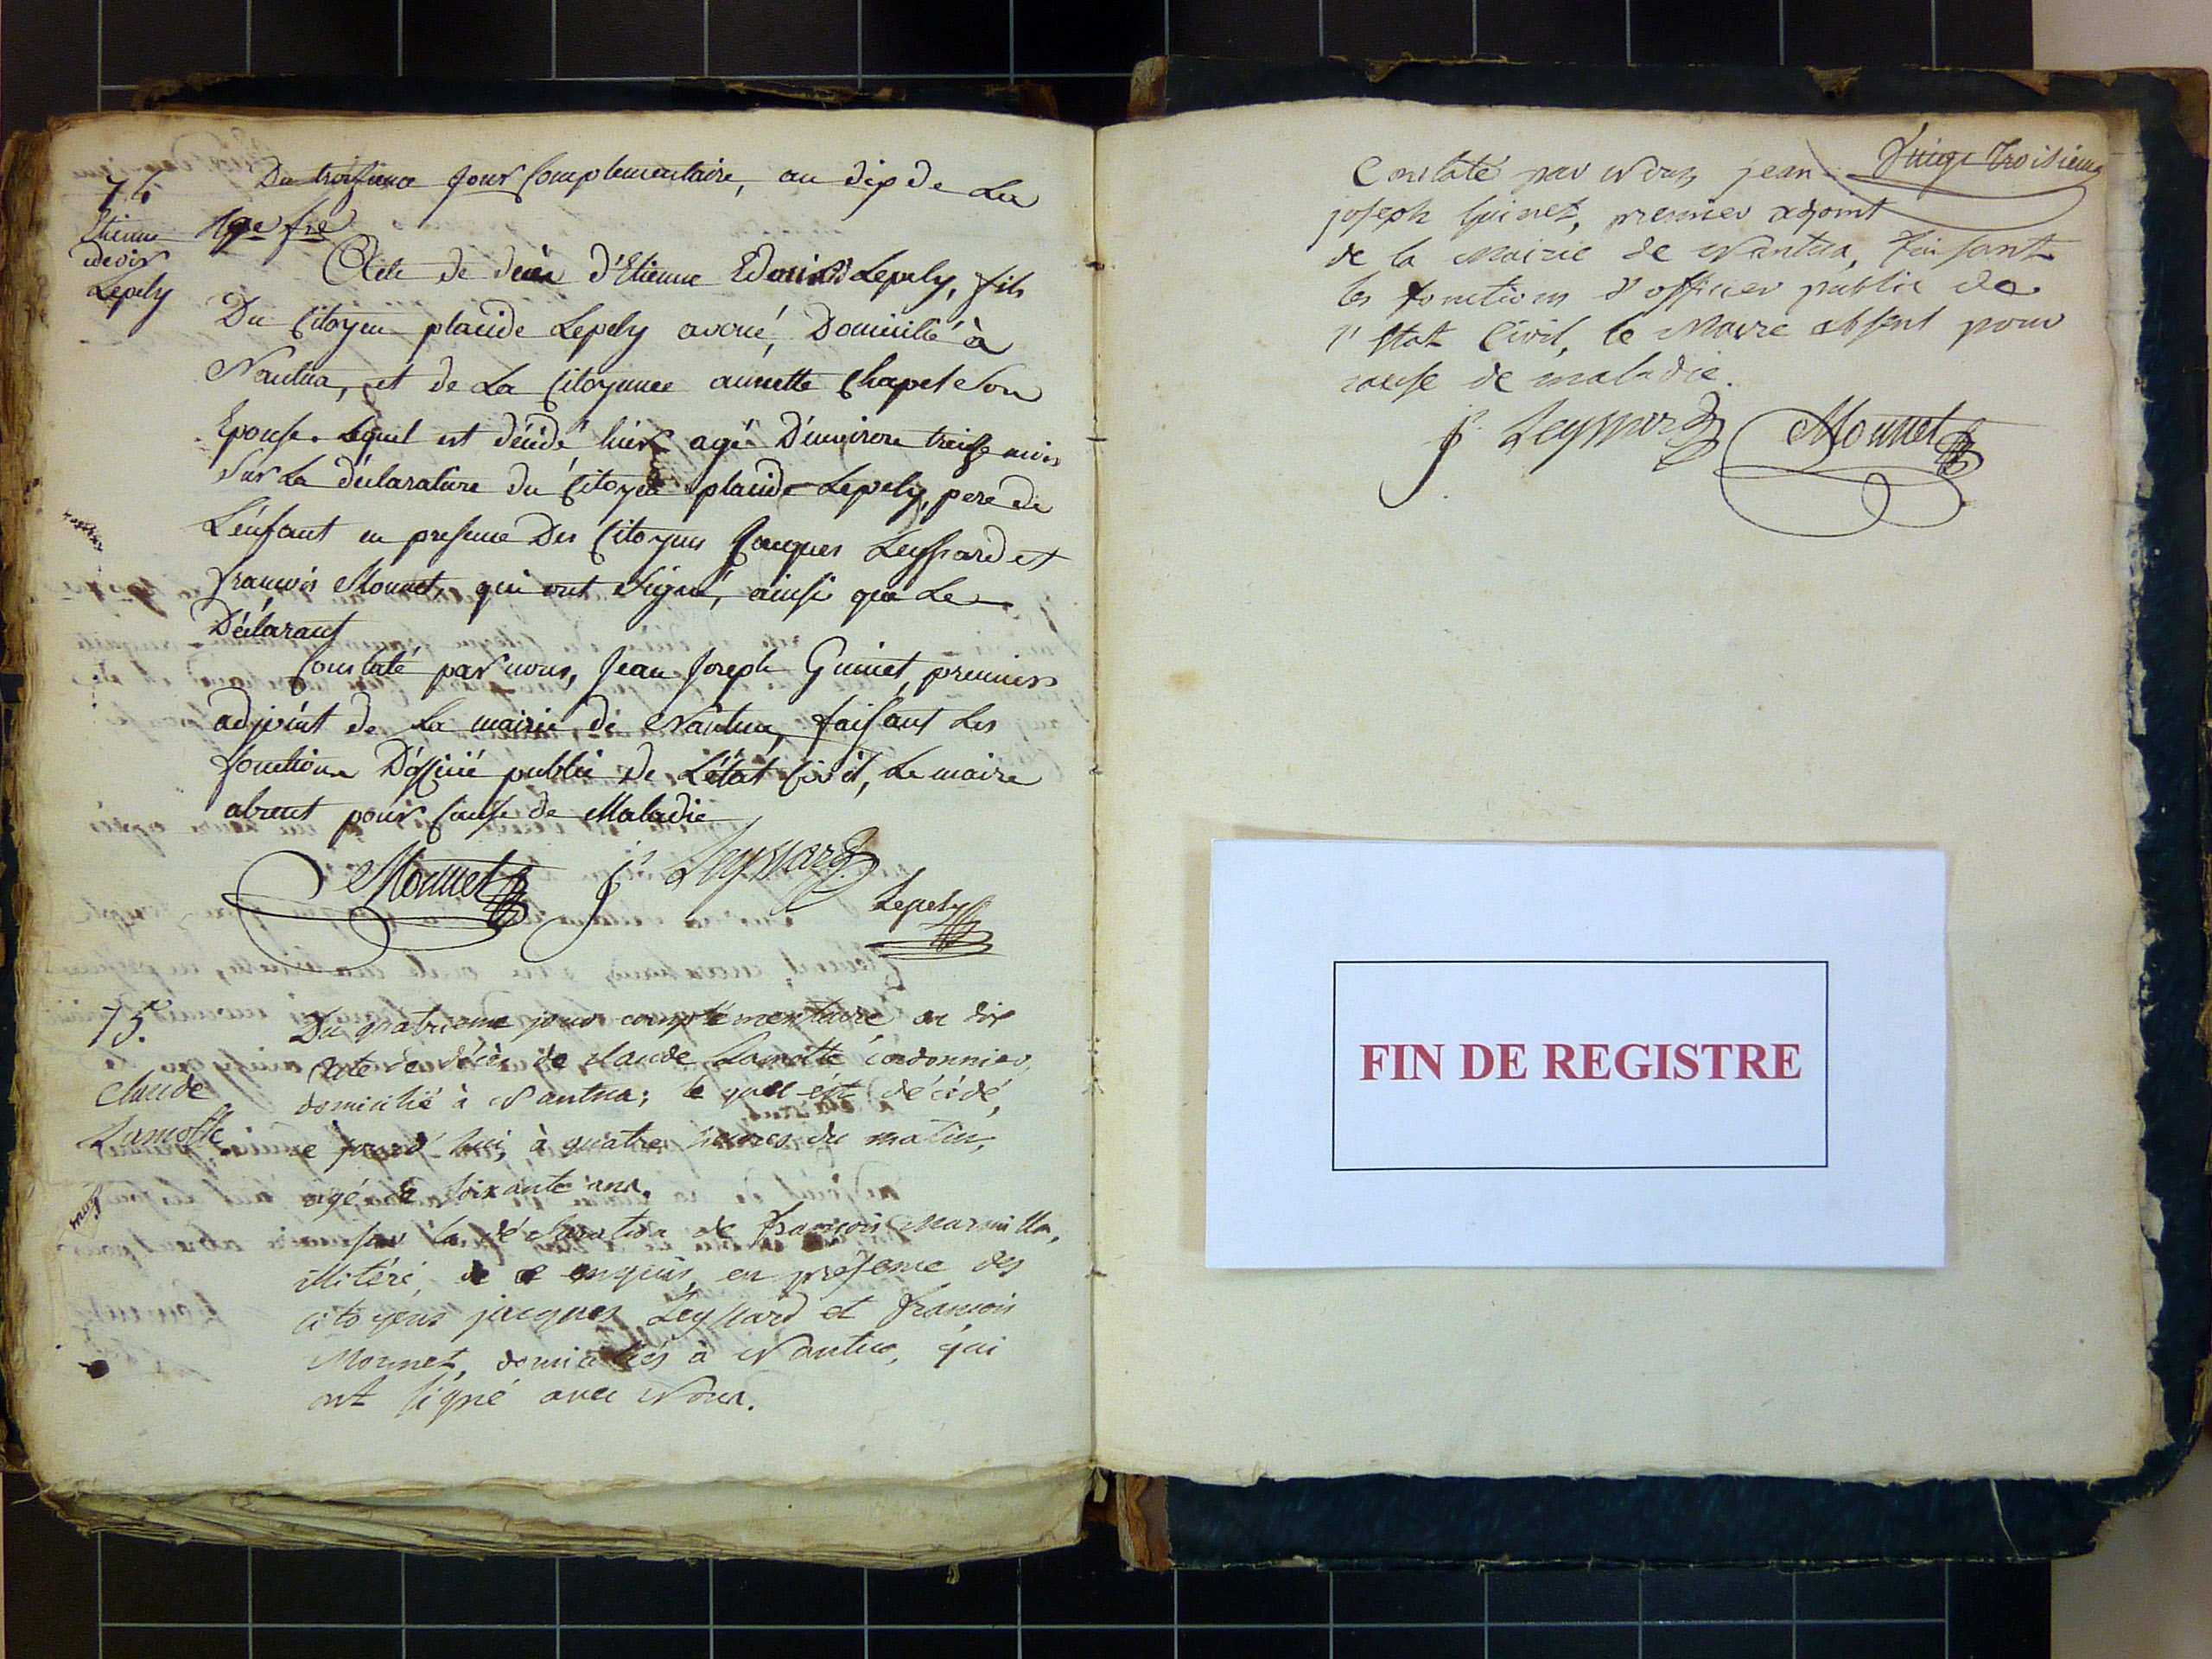 74
Etienne
edoüis
Lepely
Du troisieme Jour Complementaire, an dix de La
Rque fse
Acte de deces d'Etienne Edouis Lepely, fils
Du Citoyen placide Lepely avoué, Domicilié à
Nantua, et de La Citoyenne annette Chapel Son
Epouse. Lequel est décédé hier agé D'environ treise mois
Sur La déclaration du Citoyen placide Lepely, pere de
L'enfant en presence Des Citoyens Jacques Leyssard et
françois Monnet, qui ont Signé, ainsi que Le
Déclarant
Constaté par nous, Jean Joseph Guinet, premier
adjoint de La mairie de Nantua, faisant Les
fonctions D'officié public de L'état Civil, Le maire
absent pour Cause de Maladie
Monnet js Leyssard
Lepely
75.
Claude
Lamotte
Du quatrieme jour complémentaire an dix
Acte de décès de claude Lamotte cordonnier,
domicilié à Nantua; le quel est décédé,
ce jourd'hui, à quatre heures du matin,
agé de soixante ans.
sur la déclaration de françois
illitéré, de ce enquis, en présence des
citoyens jacques Leyssard et françois
Monnet, domiciliés à Nantua, qui
ont signé avec Nous.
Vingt troisieme
Constaté par Nous, jean
joseph Guinet, premier adjoint
de la Mairie de Nantua, faisant
les fonctions d'officier public de
l'état Civil, le Maire absent pour
cause de maladie.
js Leyssard Monnet
FIN DE REGISTRE